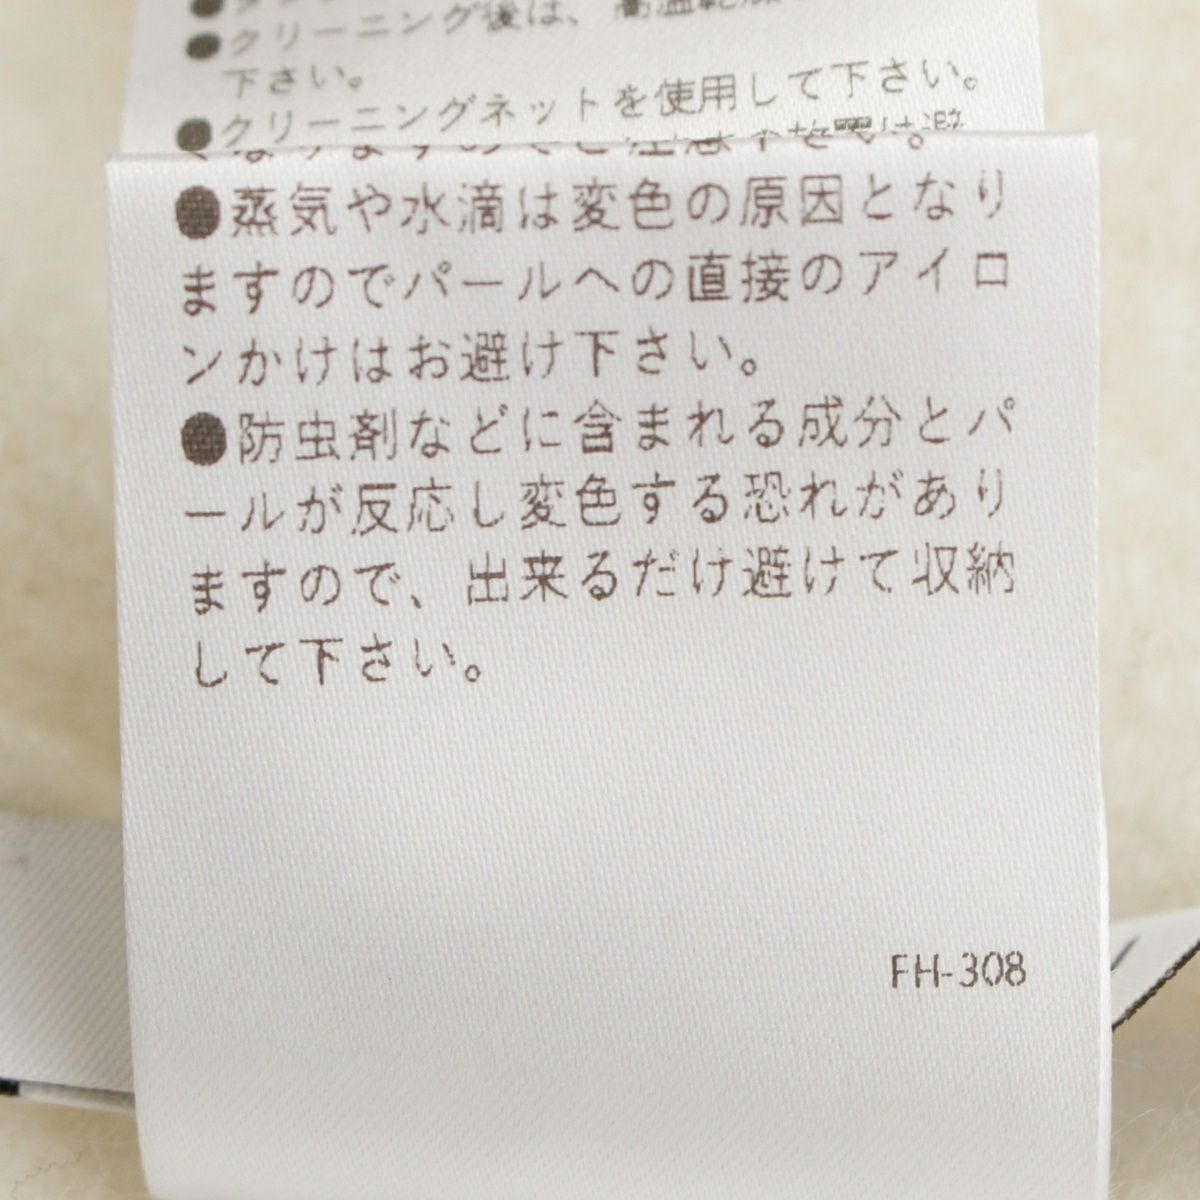 ●クリーニング後は、高温乾燥
下さい。
●クリーニングネットを使用して下さい。
●蒸気や水滴は変色の原因となり
ますのでパールへの直接のアイロ
ンかけはお避け下さい。
●防虫剤などに含まれる成分とパ
ールが反応し変色する恐れがあり
ますので、出来るだけ避けて収納
して下さい。
FH-308